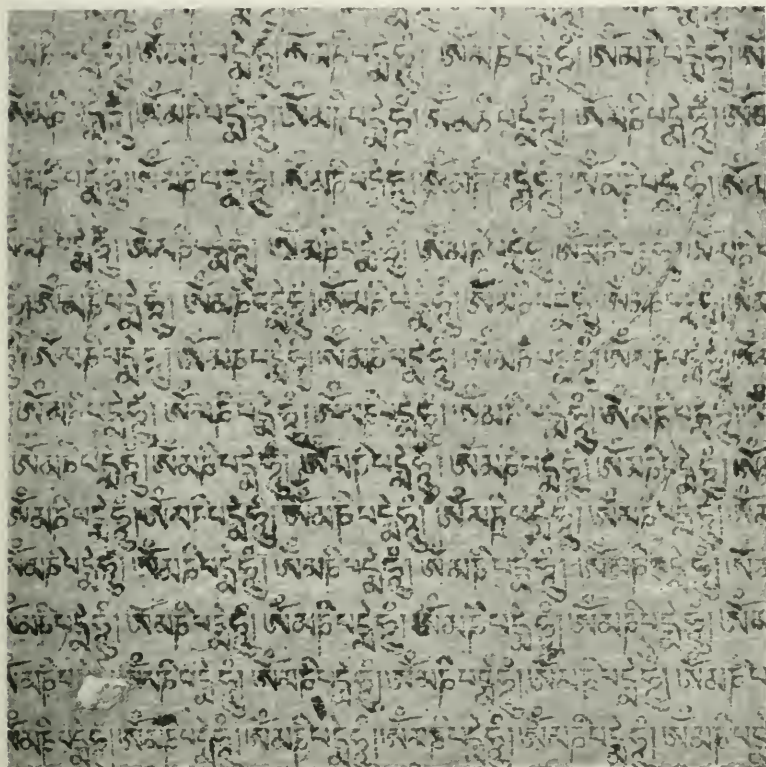 མཎིཔདྨེཧཱུྃ། ཨོཾམཎིཔདྨེཧཱུྃ། ཨོཾམཎིཔདྨེཧཱུྃ། ཨོཾམཎིཔདྨེཧཱུྃ། ཨོཾམཎིཔདྨེཧཱུྃ། ཨོཾ
ཨོཾམཎིཔདྨེཧཱུྃ། ཨོཾམཎིཔདྨེཧཱུྃ། ཨོཾམཎིཔདྨེཧཱུྃ། ཨོཾམཎིཔདྨེཧཱུྃ། ཨོཾམཎིཔདྨེཧཱུྃ། ཨོཾམ
མཎིཔདྨེཧཱུྃ། ཨོཾམཎིཔདྨེཧཱུྃ། ཨོཾམཎིཔདྨེཧཱུྃ། ཨོཾམཎིཔདྨེཧཱུྃ། ཨོཾམཎིཔདྨེཧཱུྃ། ཨོཾམ
མཎིཔདྨེཧཱུྃ། ཨོཾམཎིཔདྨེཧཱུྃ། ཨོཾམཎིཔདྨེཧཱུྃ། ཨོཾམཎིཔདྨེཧཱུྃ། ཨོཾམཎིཔདྨེཧཱུྃ། ཨོཾམཎིཔ
ཨོཾམཎིཔདྨེཧཱུྃ། ཨོཾམཎིཔདྨེཧཱུྃ། ཨོཾམཎིཔདྨེཧཱུྃ། ཨོཾམཎིཔདྨེཧཱུྃ། ཨོཾམཎིཔདྨེཧཱུྃ། ཨོཾ
ཨོཾམཎིཔདྨེཧཱུྃ། ཨོཾམཎིཔདྨེཧཱུྃ། ཨོཾམཎིཔདྨེཧཱུྃ། ཨོཾམཎིཔདྨེཧཱུྃ། ཨོཾམཎིཔདྨེཧཱུྃ། ཨོཾ
ཨོཾམཎིཔདྨེཧཱུྃ། ཨོཾམཎིཔདྨེཧཱུྃ། ཨོཾམཎིཔདྨེཧཱུྃ། ཨོཾམཎིཔདྨེཧཱུྃ། ཨོཾམཎིཔདྨེཧཱུྃ།
ཨོཾམཎིཔདྨེཧཱུྃ། ཨོཾམཎིཔདྨེཧཱུྃ། ཨོཾམཎིཔདྨེཧཱུྃ། ཨོཾམཎིཔདྨེཧཱུྃ། ཨོཾམཎིཔདྨེཧཱུྃ། ཨོཾ
ཨོཾམཎིཔདྨེཧཱུྃ། ཨོཾམཎིཔདྨེཧཱུྃ། ཨོཾམཎིཔདྨེཧཱུྃ། ཨོཾམཎིཔདྨེཧཱུྃ། ཨོཾམཎིཔདྨེཧཱུྃ། ཨོཾ
ཨོཾམཎིཔདྨེཧཱུྃ། ཨོཾམཎིཔདྨེཧཱུྃ། ཨོཾམཎིཔདྨེཧཱུྃ། ཨོཾམཎིཔདྨེཧཱུྃ། ཨོཾམཎིཔདྨེཧཱུྃ། ཨོཾམ
ཨོཾམཎིཔདྨེཧཱུྃ། ཨོཾམཎིཔདྨེཧཱུྃ། ཨོཾམཎིཔདྨེཧཱུྃ། ཨོཾམཎིཔདྨེཧཱུྃ། ཨོཾམཎིཔདྨེཧཱུྃ། ཨོཾམ
ཨོཾམཎིཔདྨེཧཱུྃ། ཨོཾམཎིཔདྨེཧཱུྃ། ཨོཾམཎིཔདྨེཧཱུྃ། ཨོཾམཎིཔདྨེཧཱུྃ། ཨོཾམཎིཔདྨེཧཱུྃ། ཨོཾམཎིཔ
ཨོཾམཎིཔདྨེཧཱུྃ། ཨོཾམཎིཔདྨེཧཱུྃ། ཨོཾམཎིཔདྨེཧཱུྃ། ཨོཾམཎིཔདྨེཧཱུྃ། ཨོཾམཎིཔདྨེཧཱུྃ། ཨོཾམཎིཔ